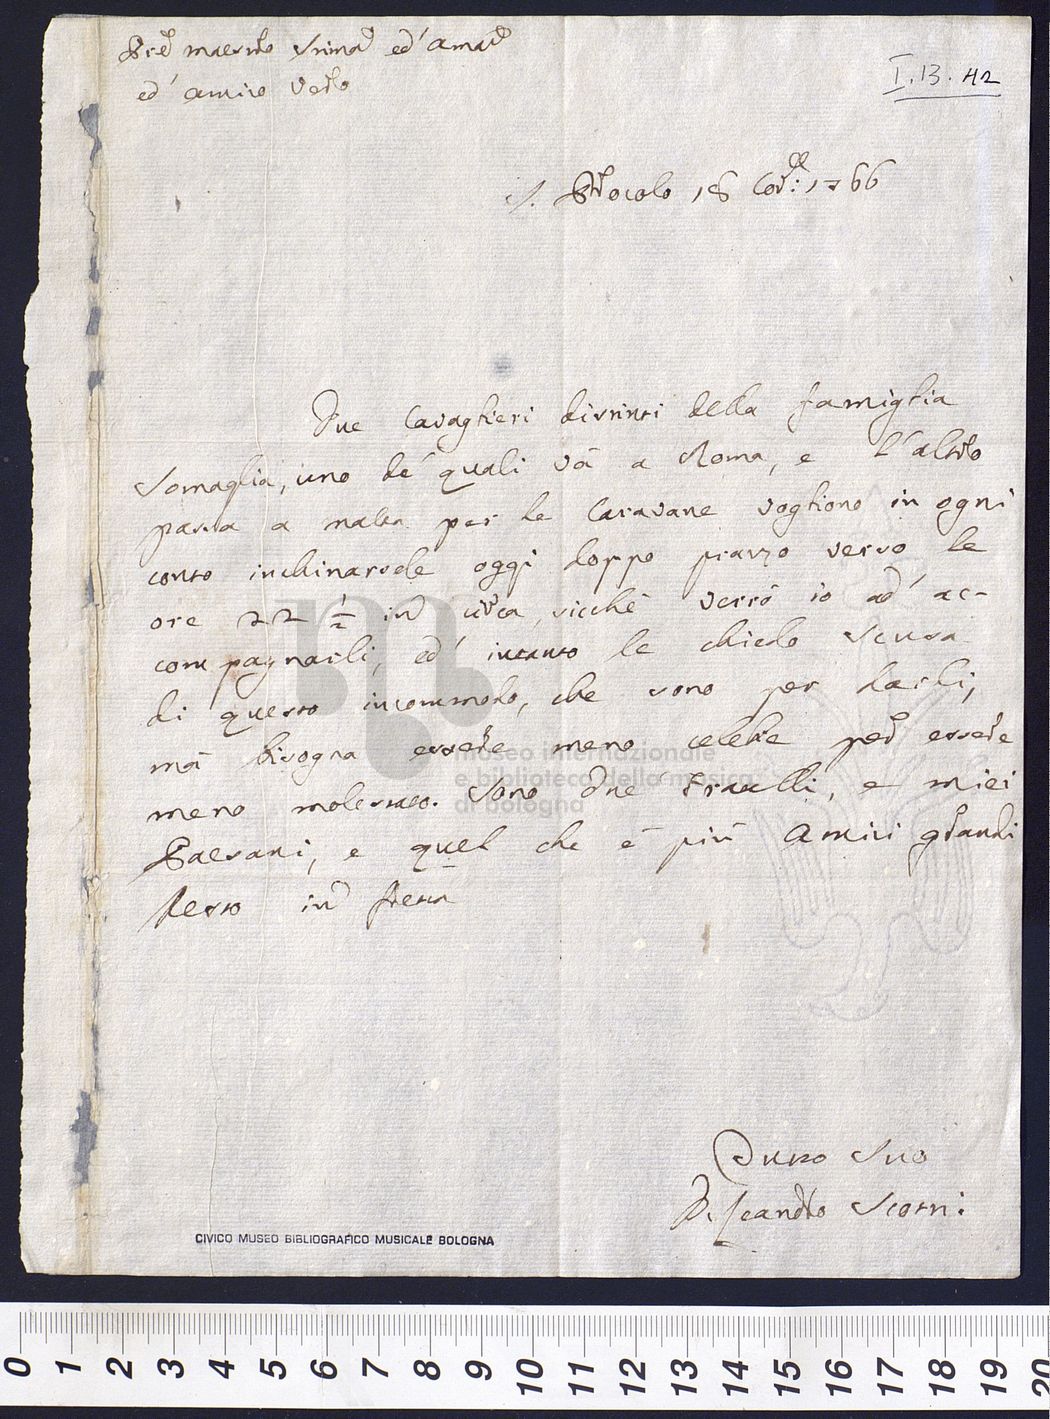 Pre maestro Stimo ed' amao
ed' amico vero
I.13.42
S. Procolo 18 Core: 1766
Due Cavaglieri distinti della famiglia
Somaglia, uno de' quali và a Roma, e l'altro
passa a malta per le Caravane vogliono in ogni
conto inchinarsele oggi doppo pranzo verso le
ore 22 1/2 in circa, sicchè verrò io ad' ac-
compagnarli, ed' intanto le chiedo scusa
di questo incommodo, che sono per darli,
mà bisogna essere meno celebre per essere
meno molestato. Sono due Fratelli, e miei
Paesani, e quel che è più Amici grandi
Resto in fretta
Tutto Suo
D. Leandro Scorni
CIVICO MUSEO BIBLIOGRAFICO MUSICALE BOLOGNA
museo internazionale
e biblioteca della musica
di bologna
0 1 2 3 4 5 6 7 8 9 10 11 12 13 14 15 16 17 18 19 20